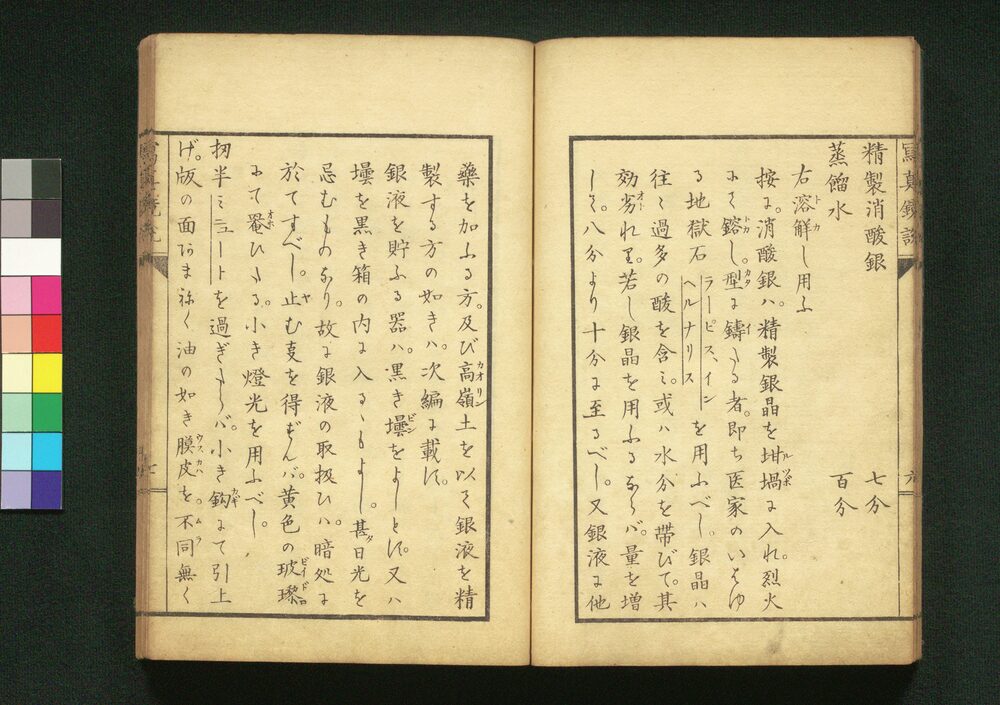 精製消酸銀 七分
蒸餾水 百分
右溶解し用ふ
按に。消酸銀ハ。精製銀晶を坩堝に入れ。烈火
にて鎔し。型に鑄たる者。即ち医家のいはゆ
る地獄石ラーピス、インヘルナリスを用ふべし。銀晶ハ
往々過多の酸を含ミ。或ハ水分を帯びて。其
効劣れり。若し銀晶を用ふるならバ。量を増
して。八分より十分に至るべし。又銀液に他
藥を加ふる方。及び高嶺土を以て銀液を精
製する方の如きハ。次編に載す。
銀液を貯ふる器ハ。黒き壜をよしとす。又ハ
壜を黒き箱の内に入るゝもよし。甚日光を
忌むものなり。故に銀液の取扱ひハ。暗処に
於てすべし。止む事を得ずんバ。黄色の玻瓈
にて罨ひたる。小き燈光を用ふべし。
扨半ミニュートを過ぎたらバ。小き鈎にて引上
げ。版の面あまねく油の如き膜皮を。不同無く
寫真鏡説
六